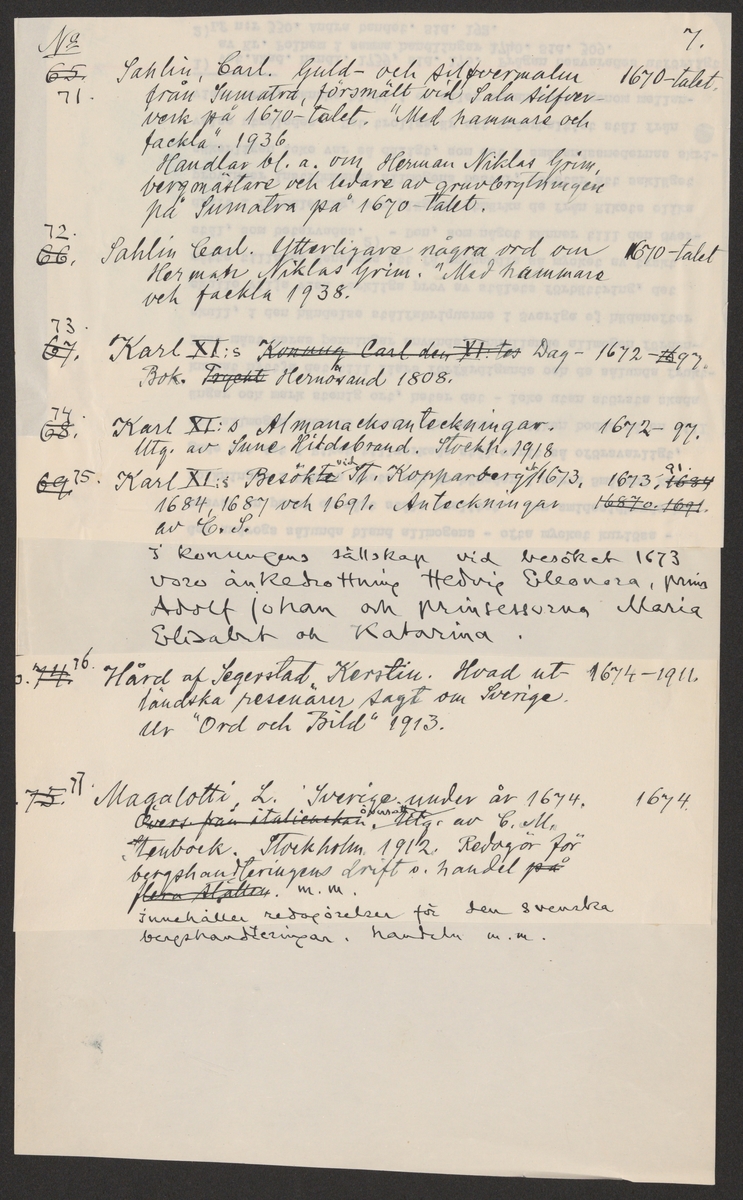 No 7.
65. Sahlin, Carl. Guld- och silfvermalm 1670-talet.
71. från Sumatra, försmält vid Sala silfver-
verk på 1670-talet. "Med hammare och
fackla". 1936
Handlar bl. a. om Herman Niklas Grim,
bergmästare och ledare av gruvbrytningen
på Sumatra på 1670-talet.
72.
66. Sahlin Carl. Ytterligare några ord om 1670-talet
Herman Niklas Grim. "Med hammare
och fackla 1938.
73.
67. Karl XI:s Konung Carl den XI:tes Dag- 1672-1697.
Bok. Tryckt Hernösand 1808.
74
68. Karl XI:s Almanacksanteckningar. 1672-97.
Utg. av Sune Hildebrand. Stockh. 1918
69. 75. Karl XI:s Besök vid St. Kopparberget 1673, 1673, 91. 1684
1684, 1687 och 1691. Anteckningar 1687 o. 1691.
av C. S.
I konungens sällskap vid besöket 1673
voro änkedrottning Hedvig Eleonora, prins
Adolf Johan och prinsessorna Maria
Elisabet och Katarina.
74. 76. Hård af Segerstad, Kerstin. Hvad ut- 1674-1911.
ländska resenärer sagt om Sverige.
Ur "Ord och Bild" 1913.
75. 77 Magalotti, L. Sverige under år 1674. 1674
Övers från italienskan Utg. av C. M.
Stenbock. Stockholm 1912. Redogör för
bergshandteringens drift o. handel på
flera ställen. m.m.
Innehåller redogörelser för den svenska
bergshandteringen, handeln m.m.